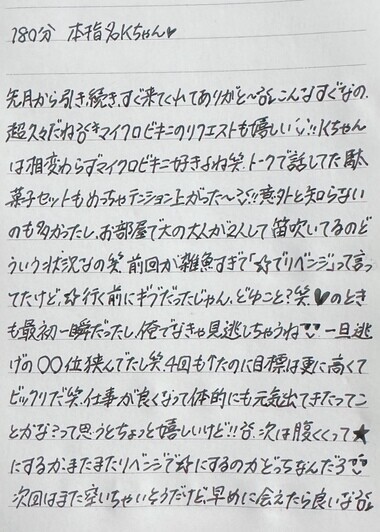 180分 本指名Kちゃん♥
先月から引き続き、すぐ来てくれてありがと〜!こんなすぐなの、
超久々だね!マイクロビキニのリクエストも嬉しい!!Kちゃん
は相変わらずマイクロビキニ好きよね笑 トークで話してた駄
菓子セットもめっちゃテンション上がった〜!!意外と知らない
のも多かったし、お部屋で大の大人が2人して笛吹いてるのど
ういう状況なの笑 前回が雑魚すぎて「でリベンジ」って言っ
てたけど、行く前にギブだったじゃん、どゆこと?笑 ♥のとき
も最初一瞬だったし、俺でなきゃ見逃しちゃうね 一旦逃
げの○○位挟んでたし笑 4回も↑たのに目標は更に高くて
ビックリだ笑 仕事が良くなって体的にも元気出てきたってこ
とかな?って思うとちょっと嬉しいけど!!次は腹くくって★
にするか、またまたリベンジでにするのかどっちなんだろ
次回はまた空いちゃいそうだけど、早めに会えたら良いな